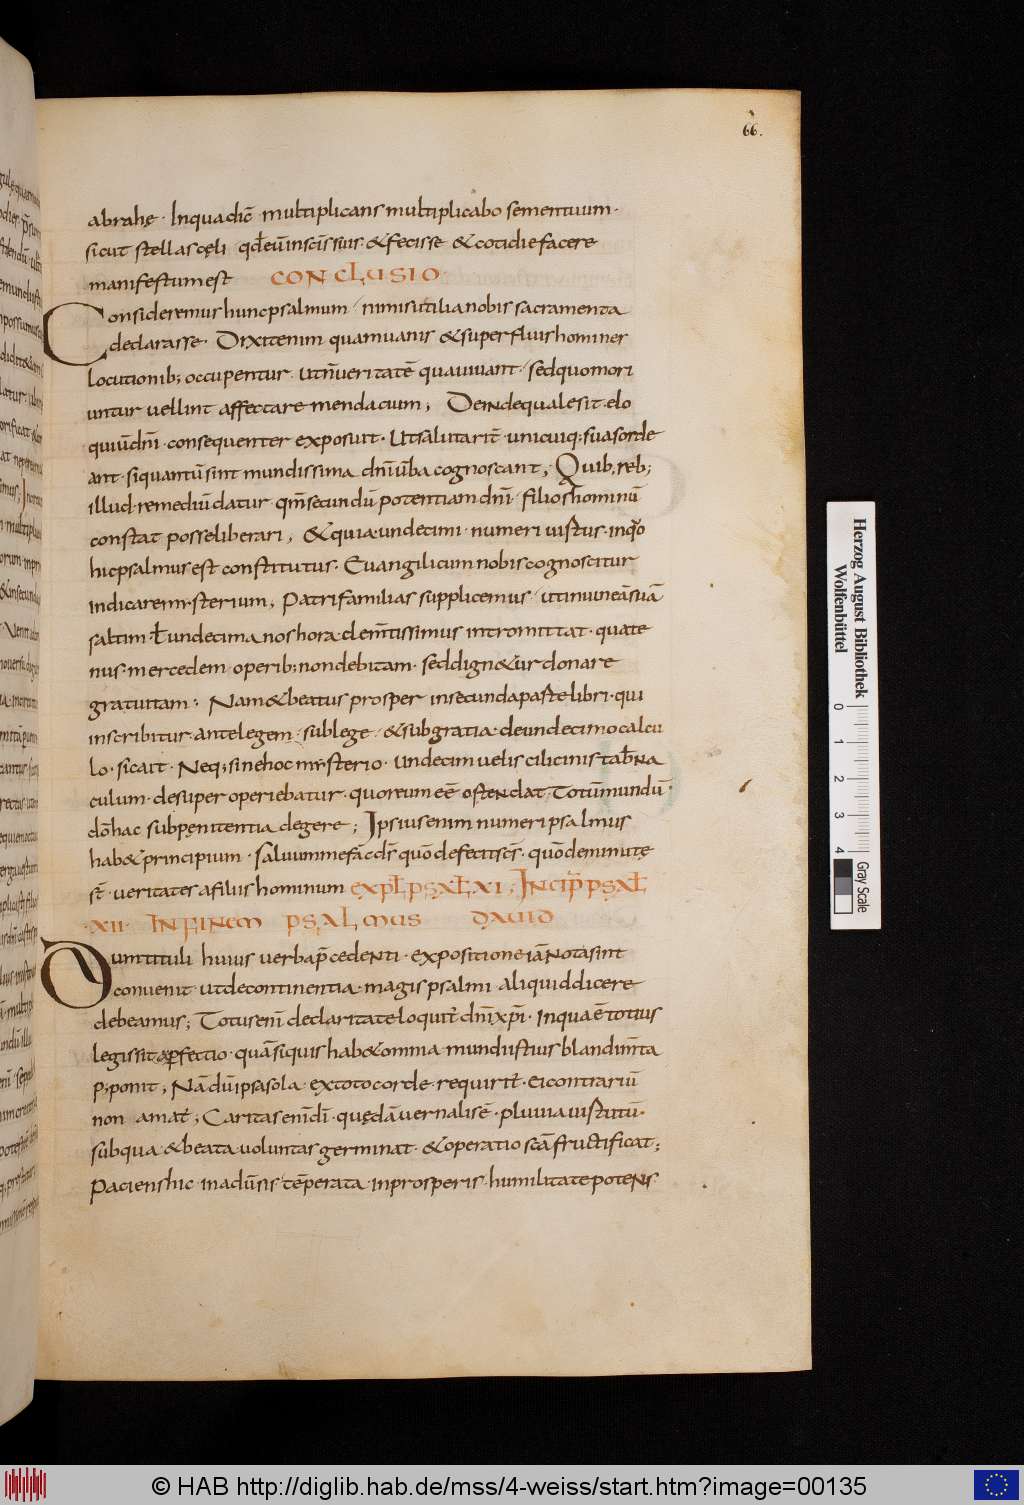 66.
abrahę · In qua dic̄ · multiplicans multiplicabo semen tuum ·
sicut stellas cęli qđ eū in sc̄is suis · & fecisse & cotidie facere
manifestum est CONCLUSIO
Consideremus hunc psalmum nimis utilia nobis sacramenta
declarasse · Dixit enim quam uanis & superfluis homines
locutionib; occupentur · ut n̄ ueritatē qua uiuant · sed quo mori
untur uellint affectare mendacium; Deinde quale sit · elo
quiū dn̄i · consequenter exposuit · Ut salutarit̄ · unicuiq; suas orde
ant · si quantū sint mundissima dn̄i ūba cognoscant; Quib; reb;
illud · remediū datur qm̄ secundū potentiam dn̄i · filios hominū
constat posse liberari; & quia · undecimi · numeri uistus · in quo
hic psalmus est constitutus · Euangilicum nobis cognoscitur
indicare mysterium; Patri familias supplicemus ut in uineā suā
saltim ł undecima nos hora clem̄tissimus intromittat · quate
nus · mercedem operib; non debitam · sed dign&ur donare
gratuitam; Nam & beatus prosper in secunda paste libri · qui
inscribitur · ante legem · sub lege · & sub gratia · de undecimo calcu
lo · sic ait · Neq; sine hoc mysterio · undecim uelis cilicinis tab̄na
culum · desuper operiebatur · quo reum eē ostendat · Totū mundū ·
dō hac sub penitentia degere; Ipsius enim numeri psalmus
hab& principium · Saluum me fac ds̄ quō defecit sc̄s · quō deminutę
st̄ · ueritates a filiis hominum EXPŁ PSAŁ XI · INCIP̄ PSAŁ
· XII · IN FINEM PSALMUS DAUID
Dum tituli huius uerba p̄cedenti · expositione iā nota sint
conuenit ut de continentia · magis psalmi aliquid dicere
debeamus; Totus eni̅ de claritate loquit̄ dn̄i xp̄i · In qua ē totius
legis sit & ꝑfectio · quā si quis hab& omnia mundi istius blandim̄ta
p;ponit; Nā dū ipsa sola · ex toto corde · requirit̄ · ei contrariū
non amat̄; Caritas eni̅ dī · quędā uernalis ē · pluuia uistutū ·
sub qua · & beata uoluntas germinat · & operatio sc̄a fructificat;
Paciens hic in adūsis tēperata in prosperis · humilitate potens
Herzog August Bibliothek
Wolfenbüttel
0 1 2 3 4
Gray Scale
© HAB http://diglib.hab.de/mss/4-weiss/start.htm?image=00135